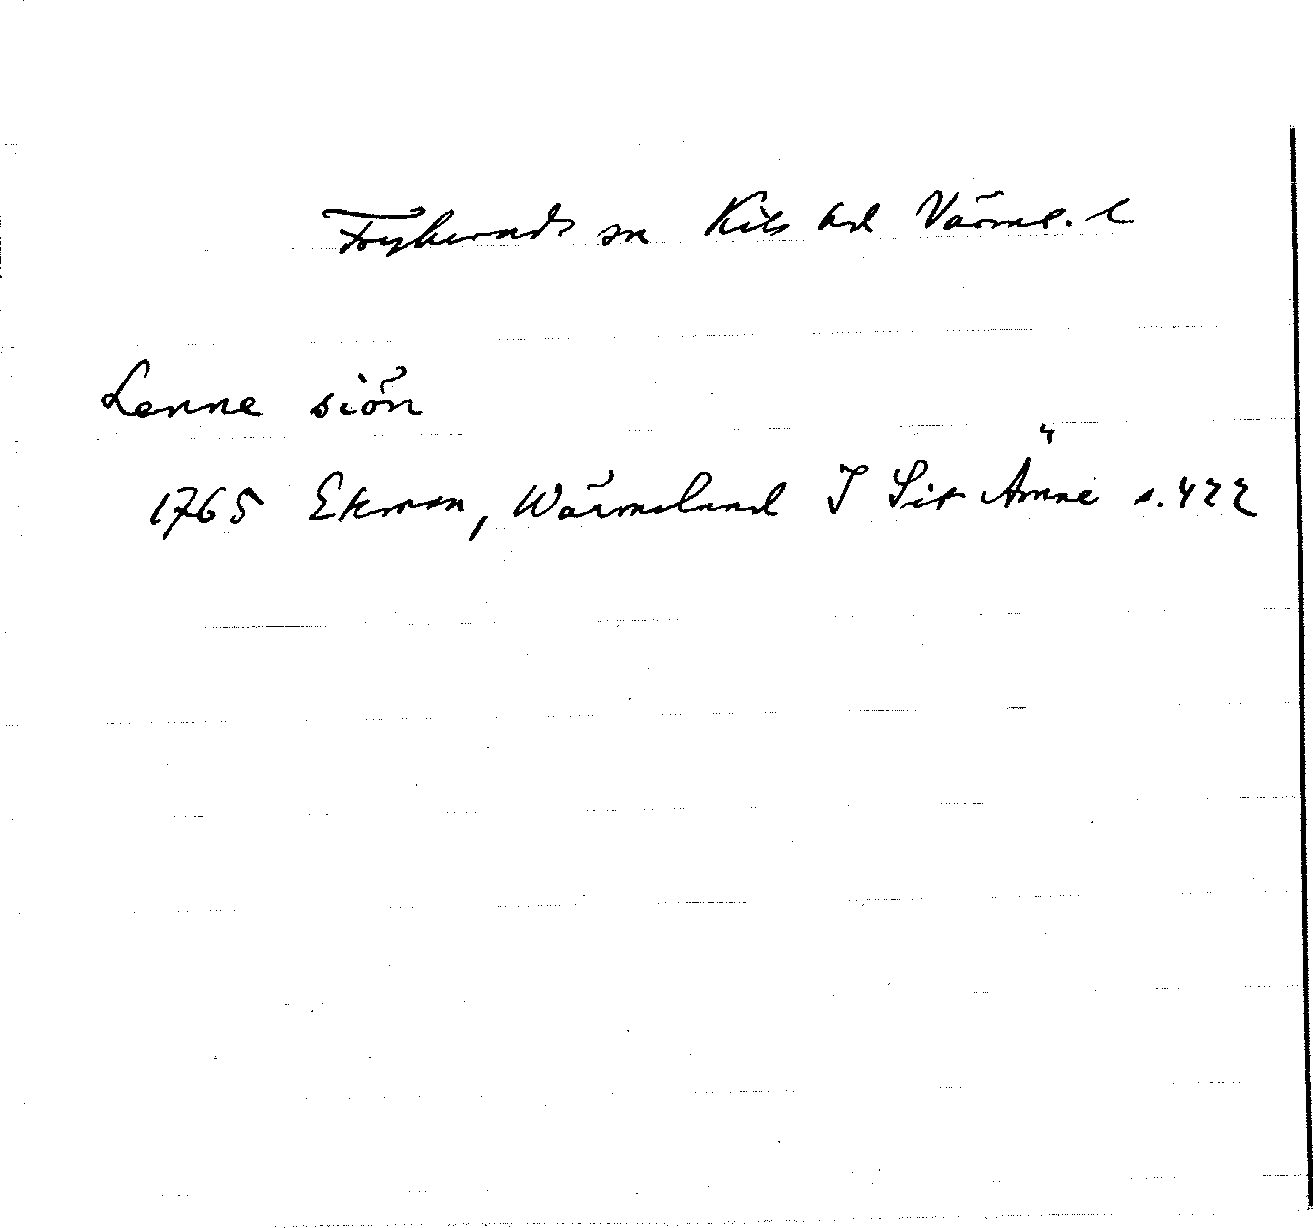 Fryksunds sn Kils hd Värml. l
Lenne siön
1765 Ekman, Wärmeland I Sit Ämne s. 422